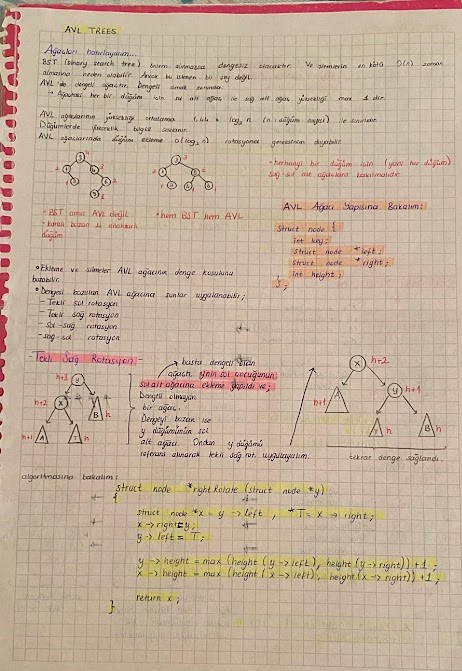 AVL TREES
Ağaçları hatırlayalım...
BST (binary search tree) bizim elimizdeyse dengesiz olacaktır. Ve işlemlerin en kötü O(n) zaman
almasına neden olabilir. Ancak bu istenen bir şey değil.
AVL de dengeli ağaçtır. Dengeli olmak zorunda.
→ Ağaçtaki her bir düğüm için sol alt ağaç ile sağ alt ağaç yüksekliği max 1 dir.
AVL ağaçlarının yüksekliği ortalama 1,44 * log₂ n (n: düğüm sayısı) ile sınırlıdır.
Düğümlerde yükseklik bilgisi saklanır.
AVL ağaçlarında düğüm ekleme O(log₂ n) rotasyona gereksinim duyabilir.
• herhangi bir düğüm için (yani her düğüm)
sağ-sol alt ağaçlara bakılmalıdır.
• BST ama AVL değil
• kuralı bozan
düğüm
• hem BST hem AVL
AVL Ağacı Yapısına Bakalım:
struct node {
int key;
struct node *left;
struct node *right;
int height;
};
• Ekleme ve silmeler AVL ağacının denge koşulunu
bozabilir.
• Dengesi bozulan AVL ağacına şunlar uygulanabilir;
- Tekli sol rotasyon
- Tekli sağ rotasyon
- sol-sağ rotasyon
- sağ-sol rotasyon
- Tekli Sağ Rotasyon -
→ başta dengeli olan
ağaçtı, y'nin sol çocuğunun
sol alt ağacına ekleme yapıldı ve;
Dengeli olmayan
bir ağaç.
Dengeyi bozan ise
y düğümünün sol
alt ağacı. Ondan y düğümü
referans alınarak tekli sağ rot. uygulayalım.
h+3
y
h+2
x
B h
h+1 A
T h
x h+2
h+1 A
y h+1
T h
B h
tekrar denge sağlandı.
algoritmasına bakalım:
struct node *rightRotate (struct node *y)
{
struct node *x = y → left, *T = x → right;
x → right = y;
y → left = T;
y → height = max (height (y → left), height (y → right)) + 1;
x → height = max (height (x → left), height (x → right)) + 1;
return x;
}